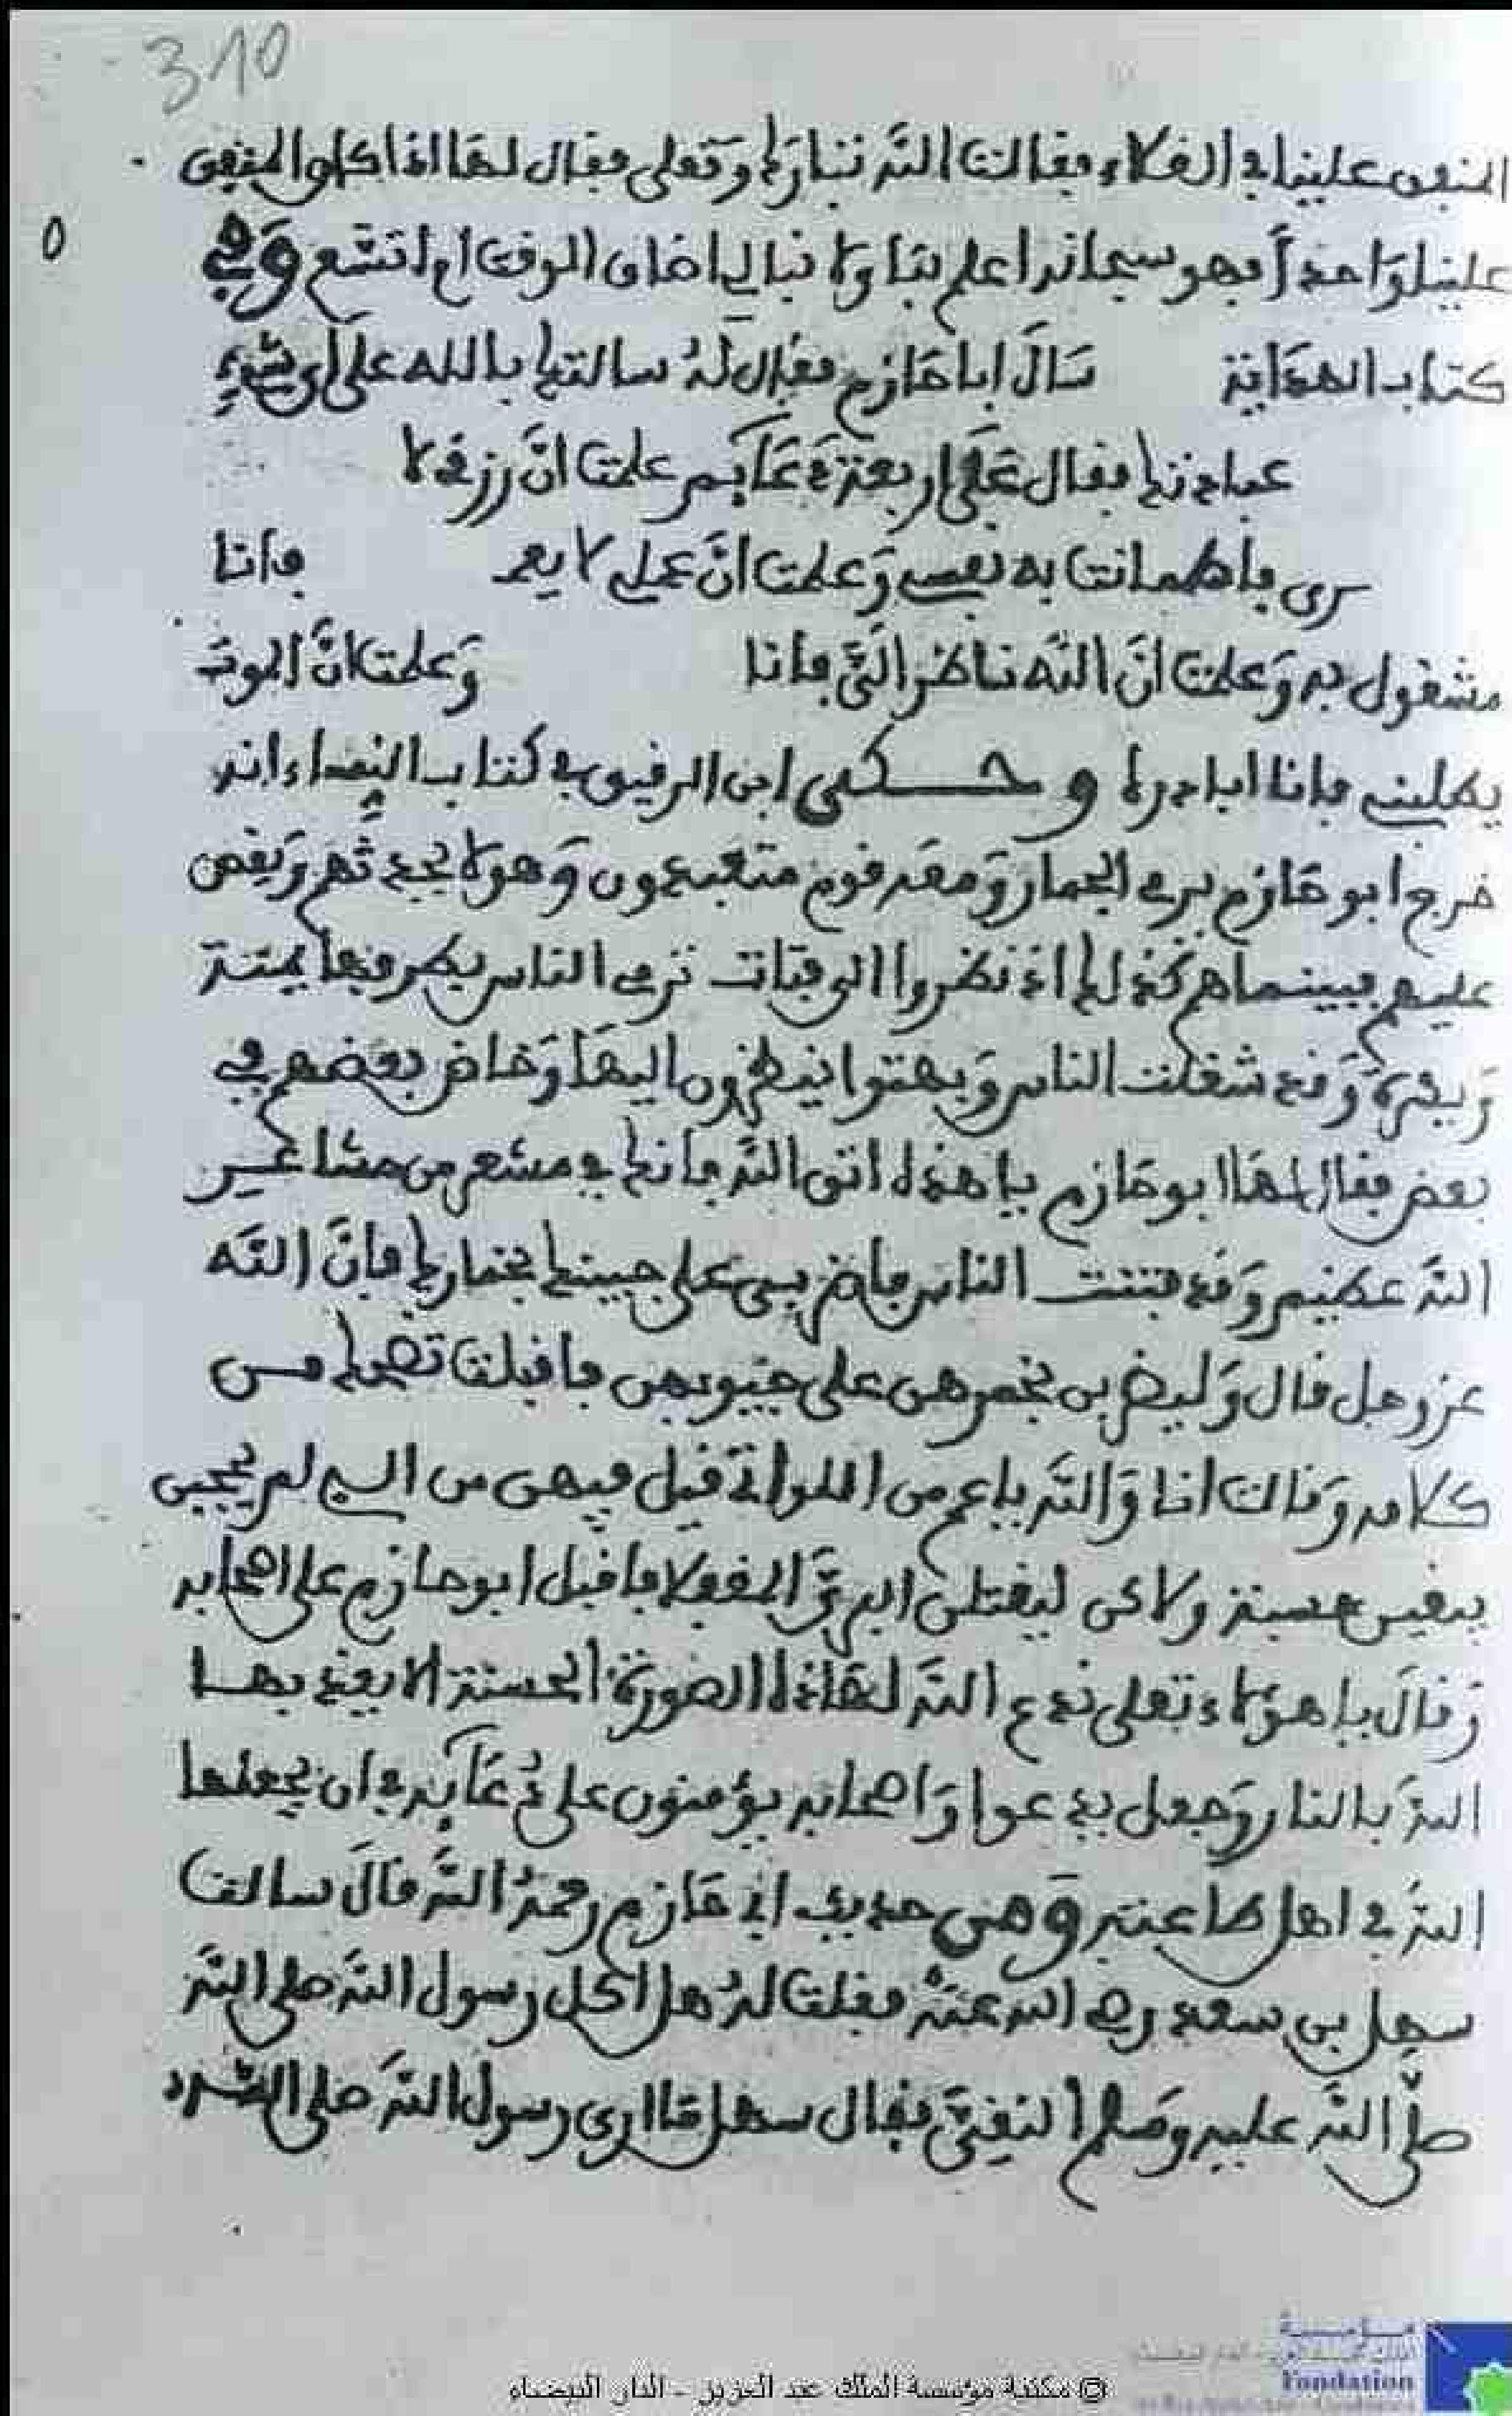 310
المنفق علينا في الغلاء فقالت الله تبارك وتعلى فقال لها اذا كان المنفق
علينا واحدا فهو سبحانه اعلم بنا ولا نبالي اضاق الوقت ام اتسع وفي
كتاب الهداية سال ابا حازم فقال له سالتك بالله على اي شيء
عبادتك فقال على اربعة دعايم علمت ان رزقي لا
فاطمانت به نفسي وعلمت ان عملي لا فانا
مشغول به وعلمت ان الله ناظر الي فانا وعلمت ان الموت
يطلبني فانا ابادره وحكى ابن الرفيق في كتاب النساء انه
خرج ابو حازم يرمي الجمار ومعه قوم متعبدون وهو لا يحدثهم ويقص
عليهم فبينما هم كذلك اذ نظروا الى فتات ترمي الناس بطرفها يمنة
ويسرة وقد شغلت الناس وبهتوا ينظرون اليها وخاض بعضهم في
بعض فقال لها ابو حازم يا هذه اتق الله فانك في مشعر من مشاعير
الله عظيم وقد فتنت الناس فاضربي على جيبك بخمارك فان الله
عز وجل قال وليضربن بخمرهن على جيوبهن فاقبلت تضحك من
كلامه وقالت انا والله يا عم من اللواتي قيل فيهن من الي لم يحجبن
يبغين حسبة ولاكن ليقتلن البري المغفلا فاقبل ابو حازم على اصحابه
وقال يا هولاء تعلى ندع الله لهاذه الصورة الحسنة الا يعذبها
الله بالنار وجعل يدعوا واصحابه يؤمنون على دعايه في ان يجعلها
الله في اهل طاعته وهي حديث ابي حازم رحمه الله قال سالت
سهل بن سعد رضي الله عنه فقلت له هل اكل رسول الله صلى الله
صلى الله عليه وسلم النقي فقال سهل ما اري رسول الله صلى الله
© مكتبة مؤسسة الملك عبد العزيز - الدار البيضاء
Fondation